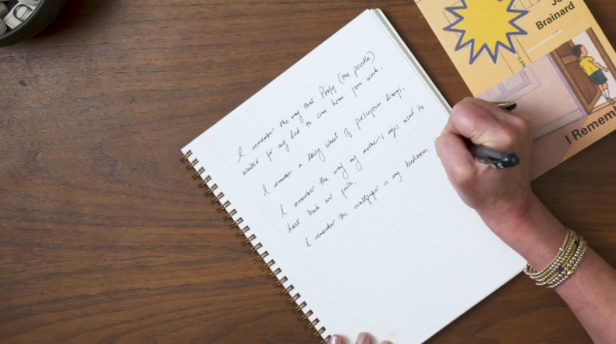 I remember the way that Poofy (the poodle)
waited for my dad to come home from work.
I remember a daisy wheel of prescription
I remember the way my mother's eyes used to
dart back and forth.
I remember the wallpaper in my bedroom.
Brainard
I Remem